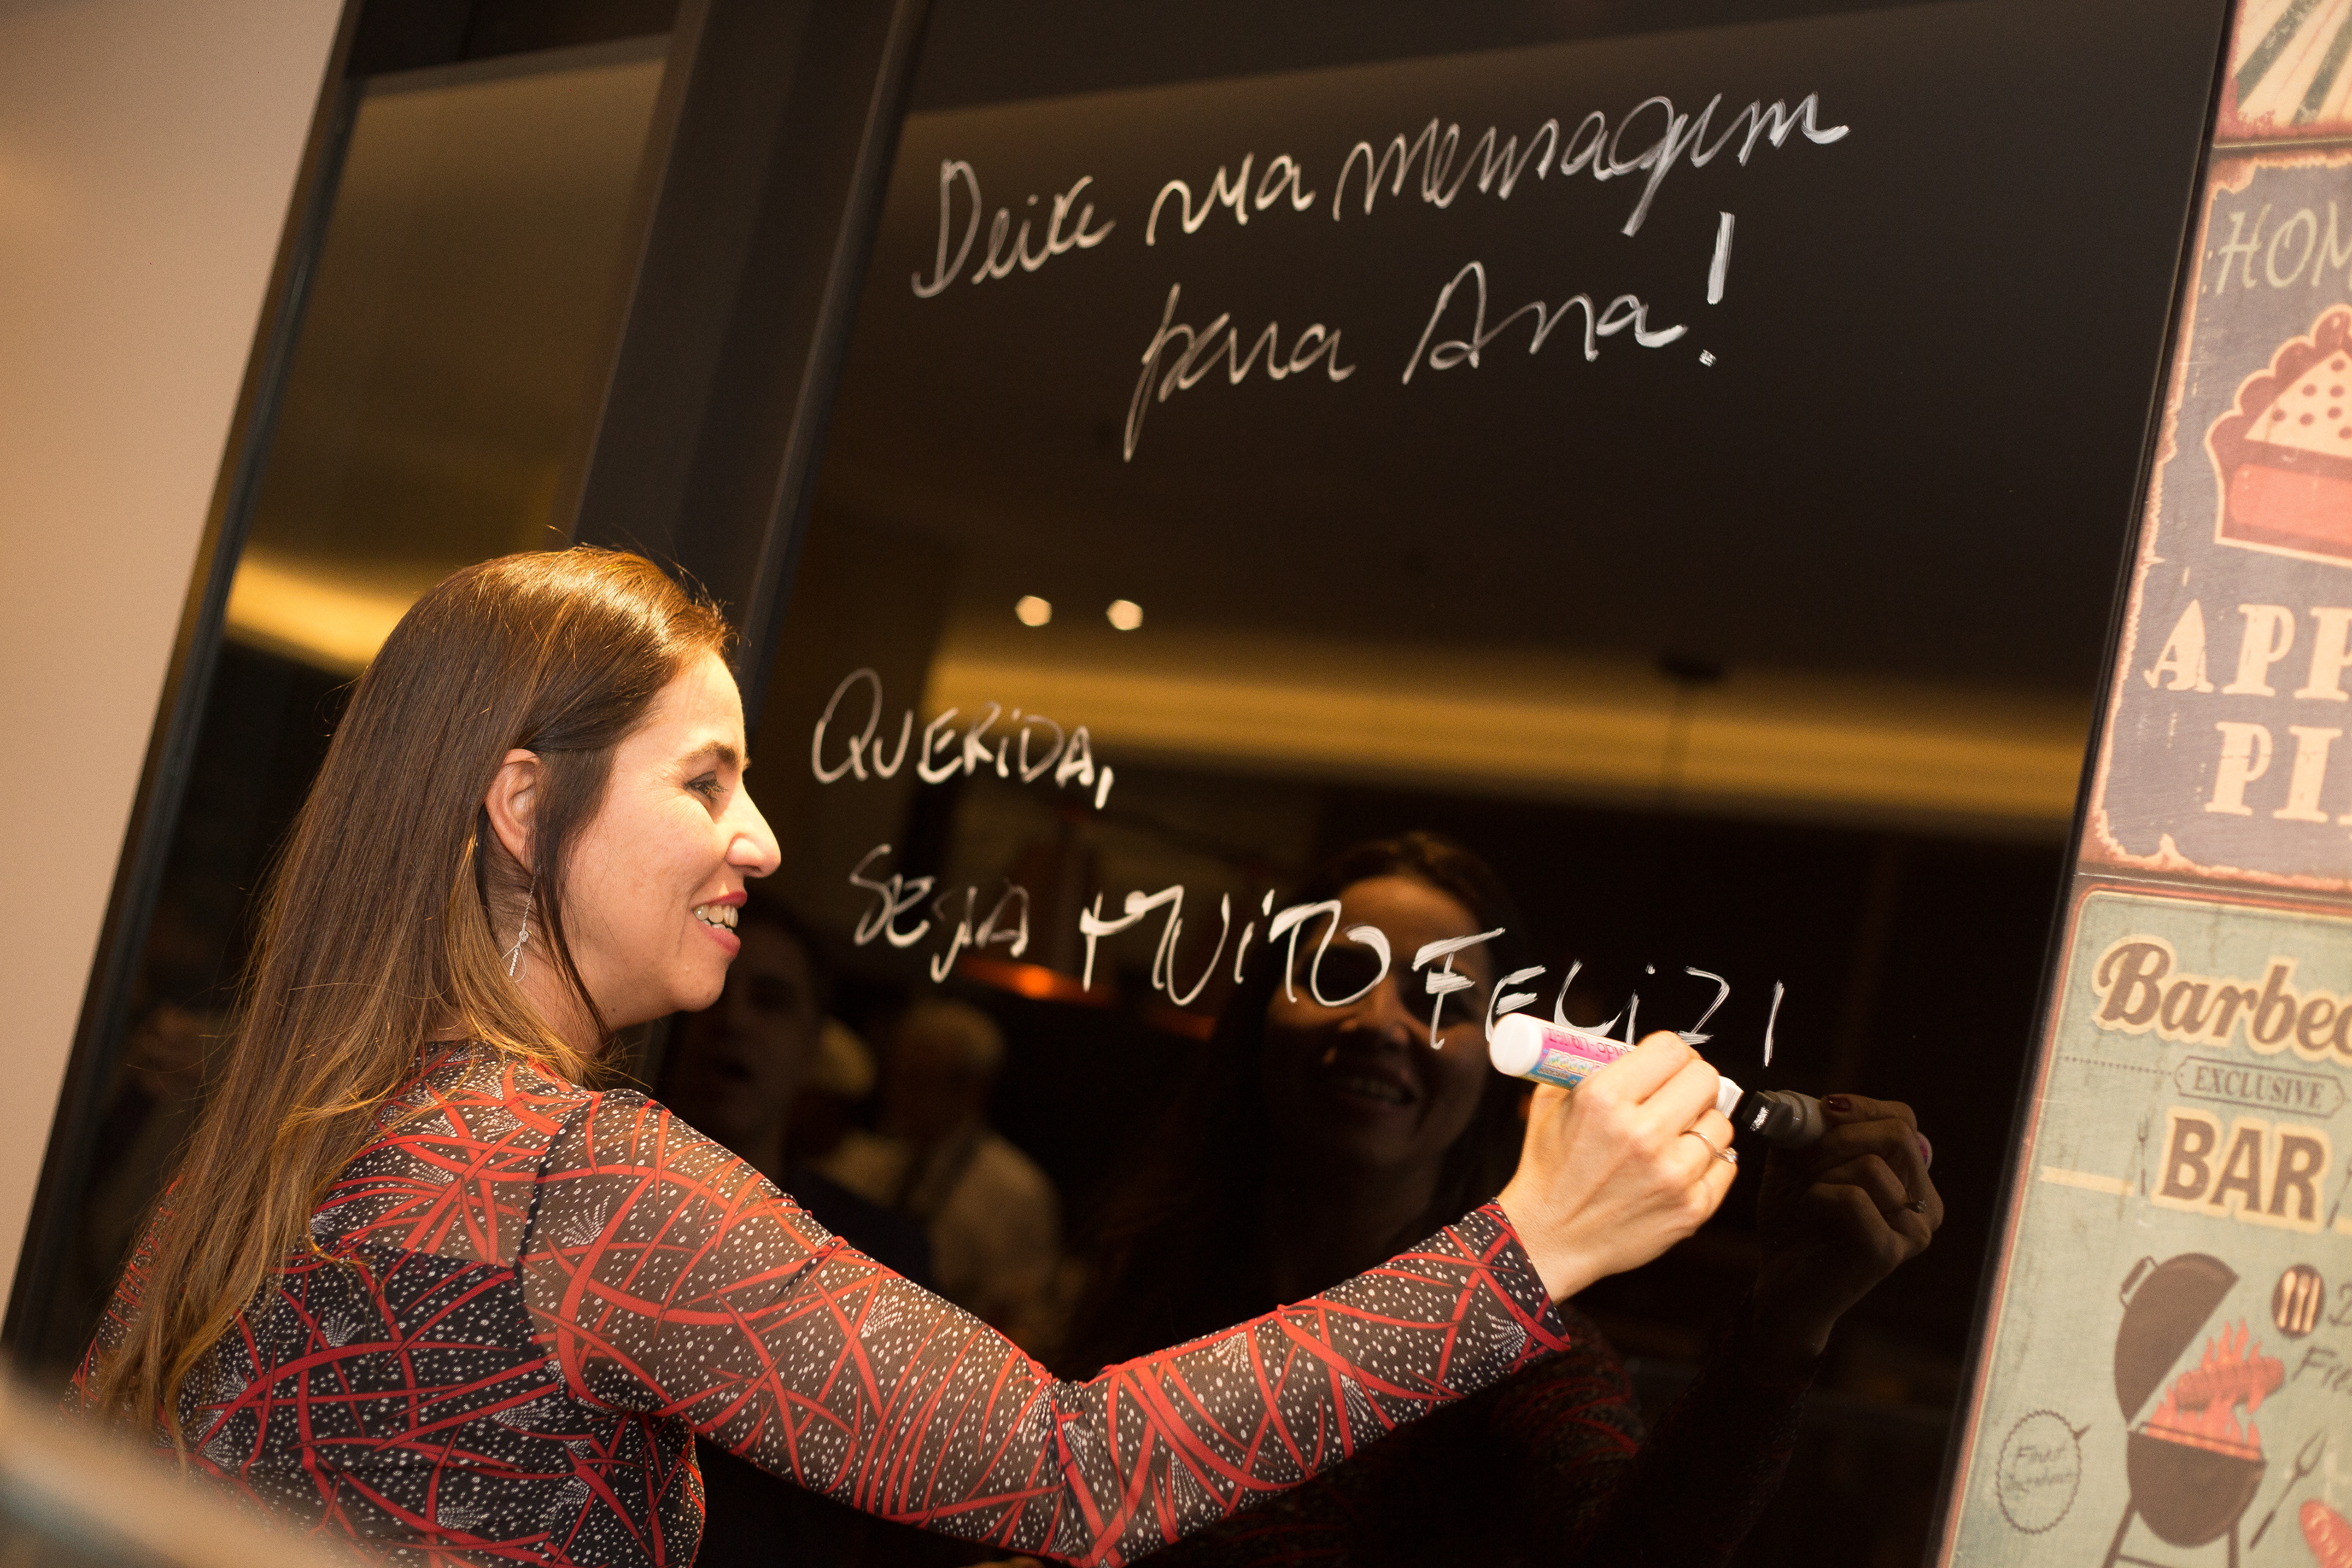 Deixe sua mensagem
para Ana!
QUERIDA,
SEJA MUITO FELIZ!
HOM
APP
PI
Barbec
EXCLUSIVE
BAR
Finest